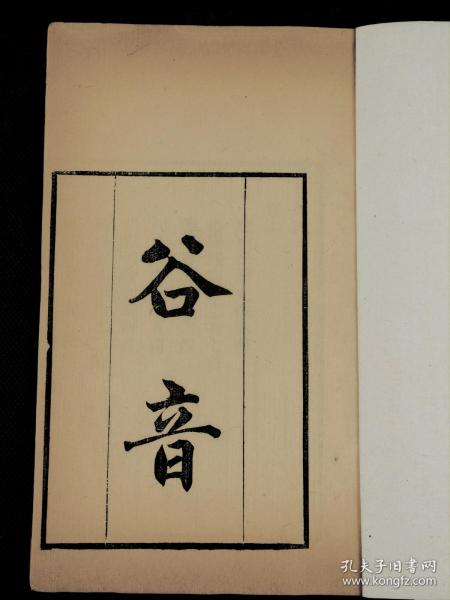 谷音
孔夫子旧书网
www.kongfz.com